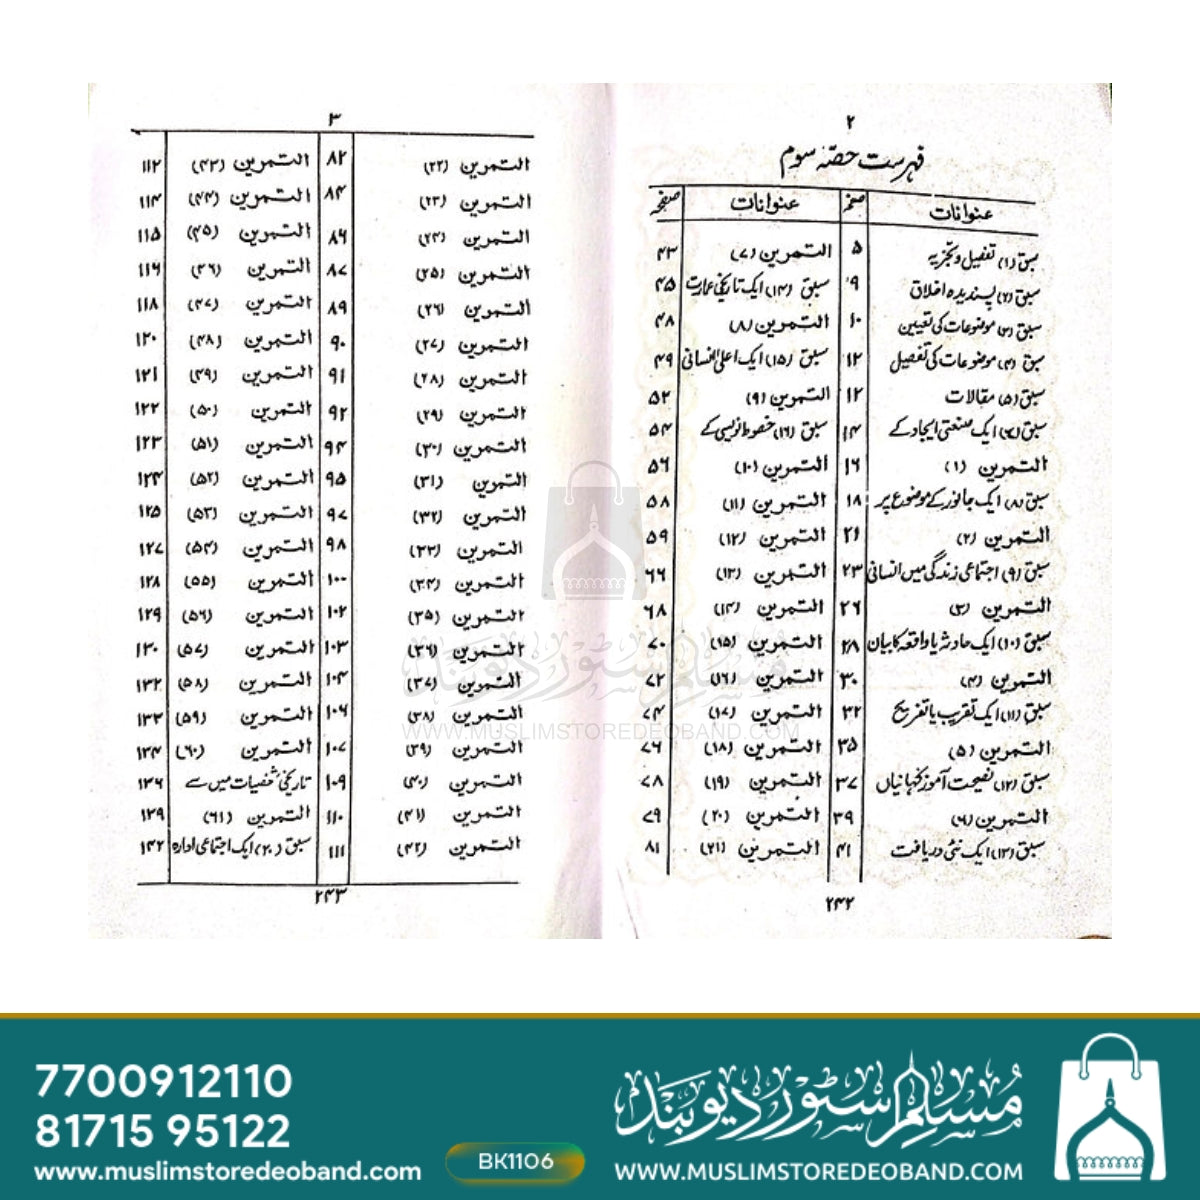 ۲
فہرست حصہ سوم
عنوانات صفحہ عنوانات صفحہ
سبق (۱) تفصیل و تجزیہ ۵ التمرین (۷) ۴۳
سبق (۲) پسندیدہ اخلاق ۹ سبق (۱۴) ایک تاریخی عمارت ۴۵
سبق (۳) موضوعات کی تعیین ۱۰ التمرین (۸) ۴۸
سبق (۴) موضوعات کی تفصیل ۱۲ سبق (۱۵) ایک اعلیٰ انسانی ۴۹
سبق (۵) مقالات ۱۲ التمرین (۹) ۵۲
سبق (۶) ایک صنعتی ایجاد کے ۱۴ سبق (۱۶) خطوط نویسی کے ۵۴
التمرین (۱) ۱۶ التمرین (۱۰) ۵۶
سبق (۸) ایک جانور کے موضوع پر ۱۸ التمرین (۱۱) ۵۸
التمرین (۲) ۲۱ التمرین (۱۲) ۵۹
سبق (۹) اجتماعی زندگی میں انسانی ۲۳ التمرین (۱۳) ۶۶
التمرین (۳) ۲۶ التمرین (۱۴) ۶۸
سبق (۱۰) ایک حادثہ یا واقعہ کا بیان ۲۸ التمرین (۱۵) ۷۰
التمرین (۴) ۳۰ التمرین (۱۶) ۷۲
سبق (۱۱) ایک تقریب یا تفریح ۳۲ التمرین (۱۷) ۷۴
التمرین (۵) ۳۵ التمرین (۱۸) ۷۶
سبق (۱۲) نصیحت آموز کہانیاں ۳۷ التمرین (۱۹) ۷۸
التمرین (۶) ۳۹ التمرین (۲۰) ۷۹
سبق (۱۳) ایک نئی دریافت ۴۱ التمرین (۲۱) ۸۱
۲۴۲
۳
التمرین (۲۲) ۸۲ التمرین (۴۳) ۱۱۲
التمرین (۲۳) ۸۴ التمرین (۴۴) ۱۱۴
التمرین (۲۴) ۸۶ التمرین (۴۵) ۱۱۵
التمرین (۲۵) ۸۷ التمرین (۴۶) ۱۱۶
التمرین (۲۶) ۸۹ التمرین (۴۷) ۱۱۸
التمرین (۲۷) ۹۰ التمرین (۴۸) ۱۲۰
التمرین (۲۸) ۹۱ التمرین (۴۹) ۱۲۱
التمرین (۲۹) ۹۲ التمرین (۵۰) ۱۲۲
التمرین (۳۰) ۹۴ التمرین (۵۱) ۱۲۳
التمرین (۳۱) ۹۵ التمرین (۵۲) ۱۲۴
التمرین (۳۲) ۹۷ التمرین (۵۳) ۱۲۵
التمرین (۳۳) ۹۸ التمرین (۵۴) ۱۲۷
التمرین (۳۴) ۱۰۰ التمرین (۵۵) ۱۲۸
التمرین (۳۵) ۱۰۲ التمرین (۵۶) ۱۲۹
التمرین (۳۶) ۱۰۳ التمرین (۵۷) ۱۳۰
التمرین (۳۷) ۱۰۴ التمرین (۵۸) ۱۳۲
التمرین (۳۸) ۱۰۶ التمرین (۵۹) ۱۳۳
التمرین (۳۹) ۱۰۷ التمرین (۶۰) ۱۳۴
التمرین (۴۰) ۱۰۹ تاریخی شخصیات میں سے ۱۳۶
التمرین (۴۱) ۱۱۰ التمرین (۶۱) ۱۳۹
التمرین (۴۲) ۱۱۱ سبق (۲۰) ایک اجتماعی ادارہ ۱۴۲
۲۴۳
مسلم سٹور دیوبند
WWW.MUSLIMSTOREDEOBAND.COM
7700912110
81715 95122
www.muslimstoredeoband.com
BK1106
مسلم سٹور دیوبند
WWW.MUSLIMSTOREDEOBAND.COM